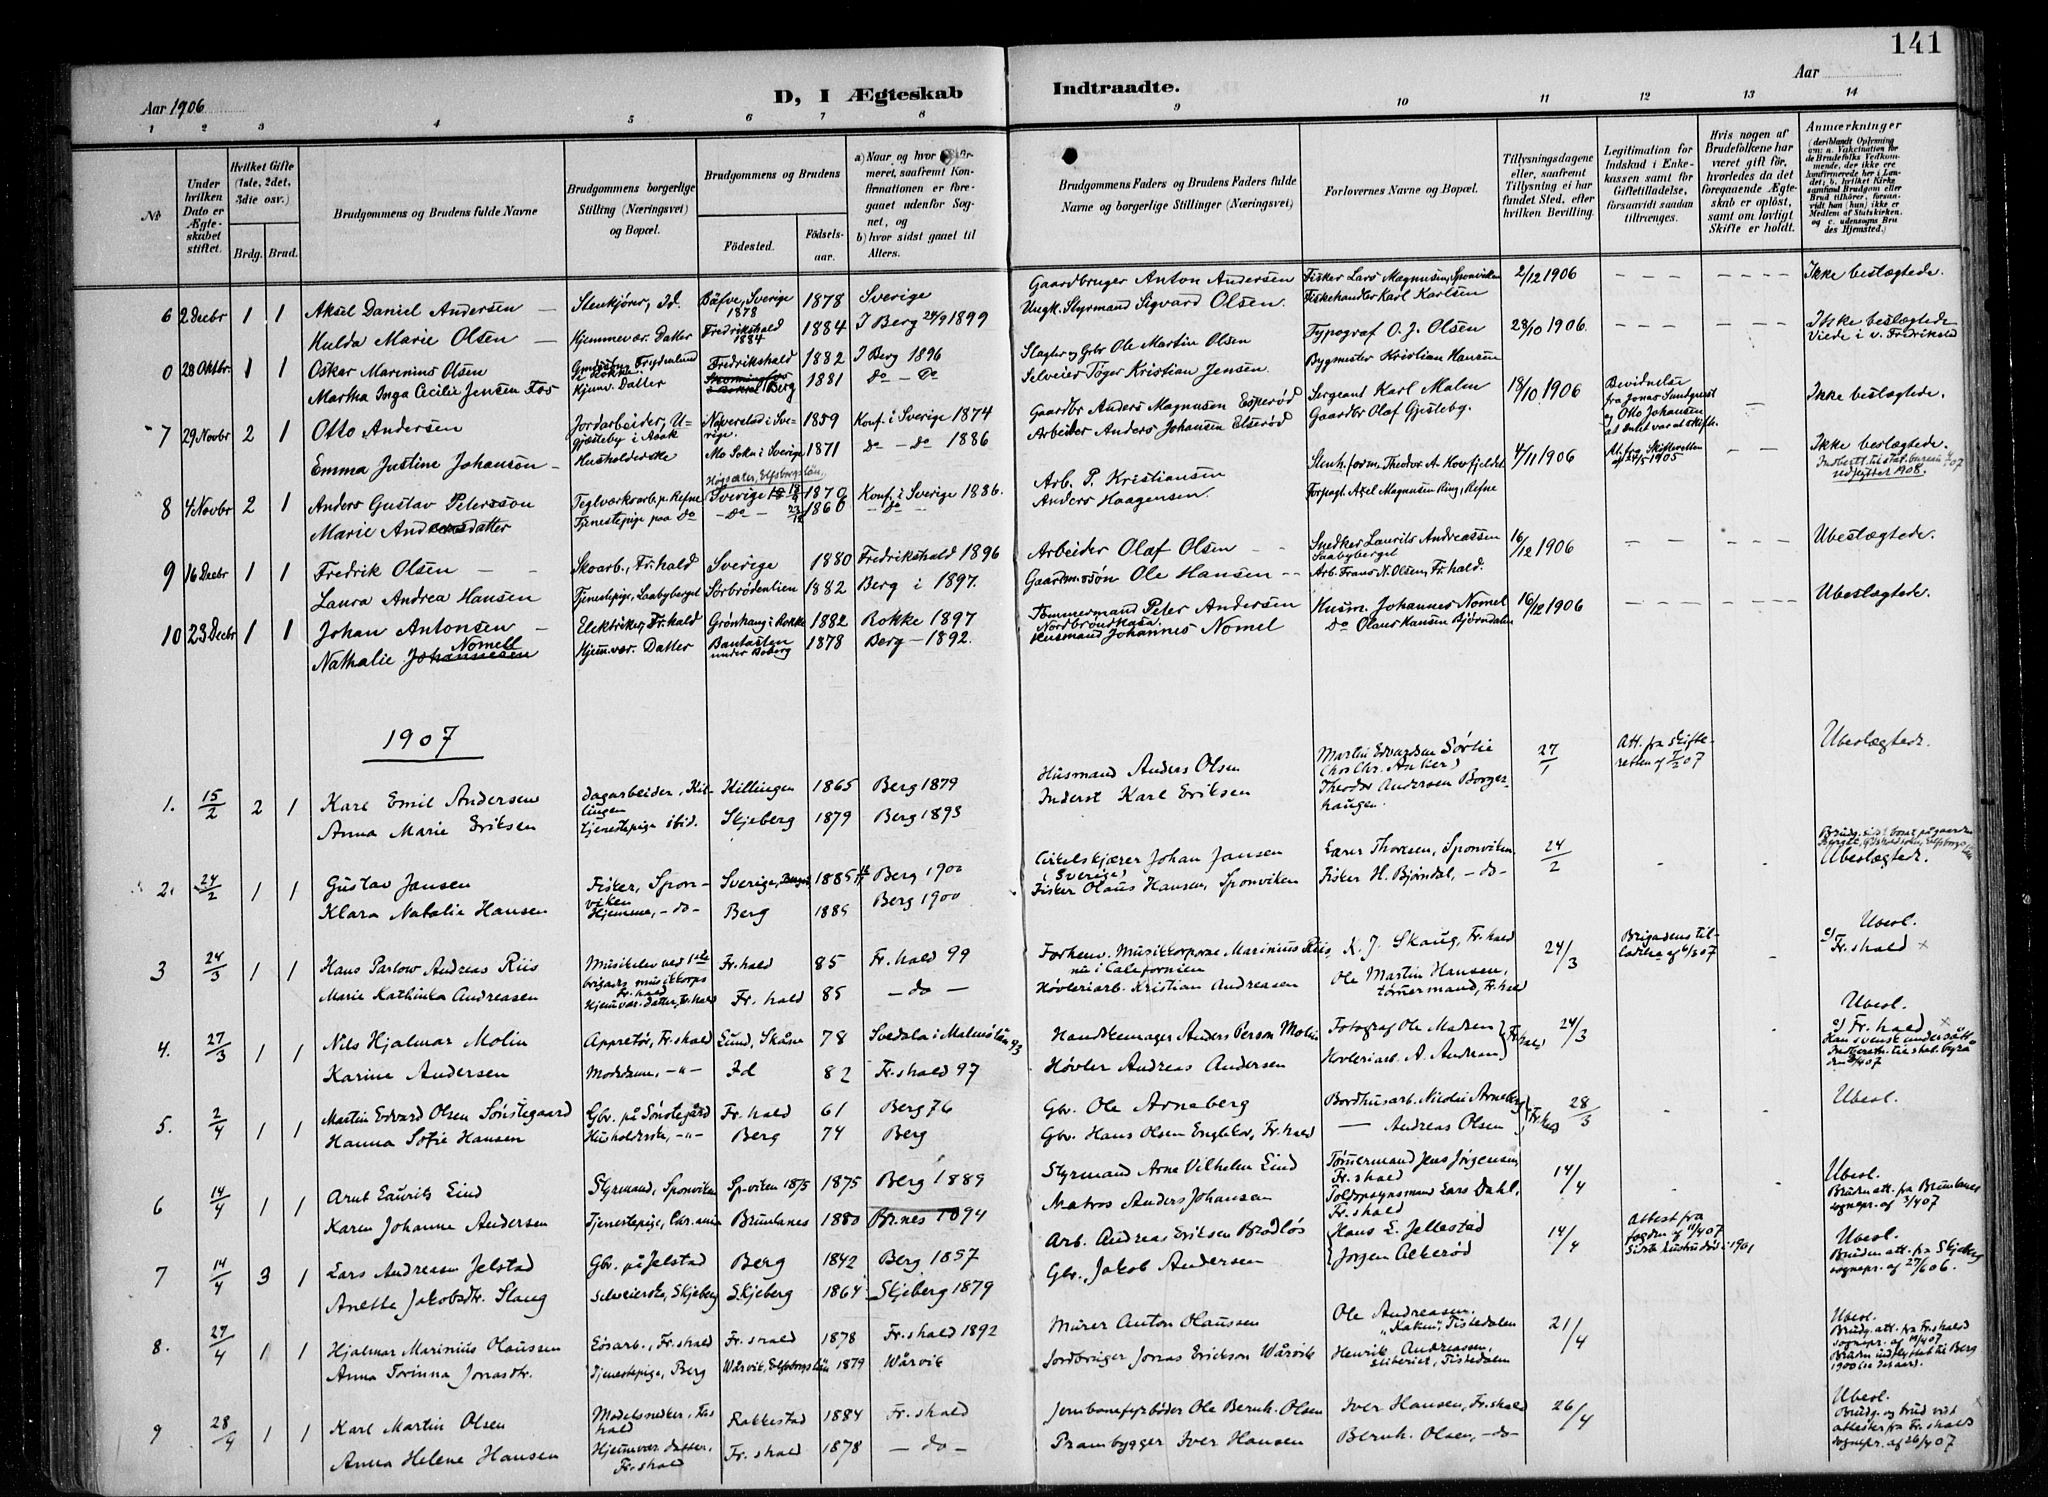 141
Aar 1906
D, I Ægteskab
Indtraadte.
Aar
1 2 3 4 5 6 7 8 9 10 11 12 13 14
No
Under hvilken Dato er Ægteskabet stiftet.
Hvilket Gifte (1ste, 2det, 3die osv.)
Brdg. Brud.
Brudgommens og Brudens fulde Navne
Brudgommens borgerlige Stilling (Næringsvei) og Bopæl.
Brudgommens og Brudens
Födested.
Födselsaar.
b) hvor sidst gaaet til Alters.
Brudgommens Faders og Brudens Faders fulde Navne og borgerlige Stillinger (Næringsvei)
Forlovernes Navne og Bopæl.
Tillysningsdagene eller, saafremt Tillysning ei har fundet Sted, efter hvilken Bevilling.
Legitimation for Indskud i Enkekassen samt for Giftetilladelse, forsaavidt saadan tiltrænges.
Hvis nogen af Brudefolkene har været gift för, hvorledes da det foregaaende Ægteskab er oplöst, samt om lovligt Skifte er holdt.
Anmærkninger
6 2 Decbr 1 1 Aksel Daniel Andersen Stenkjører, Id. Bäfve, Sverige 1878 1878 Sverige Gaardbruger Anton Andersen Fisker Lars Magnusen, Sponviken 2/12 1906 Ikke beslægtede.
Hulda Marie Olsen Hjemmevær. Datter Fredrikshald 1884 1884 I Berg 24/9 1899 Ungk. Styrmand Sigvard Olsen. Fiskehandler Karl Karlsen
0 28 Oktbr. 1 1 Oskar Marinius Olsen Fredrikshald 1882 I Berg 1896 Slagter og Gbr Ole Martin Olsen Typograf O. J. Olsen 28/10 1906 Ikke beslægtede Viede i v. Fredrikstad
Martha Inga Cecilie Jensen Fos Hjemv. Datter Berg 1881 Do - Do Selveier Kristian Jensen Bygmester Kristian Hansen
7 29 Novbr 2 1 Otto Andersen Jordarbeider, Naverstad i Sverige. 1859 Konf. i Sverige 1874 Gaardbr Anders Magnusen Esperød Sergeant Karl Malm 18/10 1906 Ikke beslægtede.
Emma Justine Johansen Husholderske Mo Sokn i Sverige 1871 do - do 1886 Arbeider Anders Johansen Elserød Gaardbr Olaf Gjesteby.
8 4 Novbr 2 1 Anders Gustav Peterssøn Teglverksarb. p. Refne Sverige 1870 Konf. i Sverige 1886. Arb. P. Kristiansen Stenh. form. Theodor A. Hovfjeldet 4/11 1906 At. fra Skifteretten af 24/5 1905 Ikke beslægtede.
Marie Andersdatter Tjenestepige paa Do - Do - 23/12 1860 - Do - Anders Haagensen Forpagt. Axel Magnusen Ring, Refne
9 16 Decbr 1 1 Fredrik Olsen Skoarb., Fr.hald Sverige 1880 Fredrikshald 1896 Arbeider Olaf Olsen Snedker Laurits Andreassen Saabyberget 16/12 1906 Ubeslægtede.
Laura Andrea Hansen Tjenestepige, Saabyberget Sörbrödenlien 1882 Berg i 1897. Gaardm.ssøn Ole Hansen Arb. Frans N. Olsen, Fr.hald.
10 23 Decbr 1 1 Johan Antonsen Elektriker, Fr.hald Grønhaug i Rokke 1882 Rokke 1897 Tømmermand Peter Andersen Husm. Johannes Nomel 16/12 1906 Ubeslægtede.
Nathalie Johannesen Nomell Hjem.vær. Datter 1878 Berg - 1892. Husmand Johannes Nomel Do Olaus Hansen Bjørndalen
1907
1. 15/2 2 1 Karl Emil Andersen Dagarbeider, Killingen Killingen 1865 Berg 1879 Husmand Anders Olsen Martin Edvardsen Sørlie 27/1 Att. fra skifteretten af 7/2 07 Ubeslægtede.
Anna Marie Eriksen Tjenestepige ibid. Skjeberg 1879 Berg 1893 Inderst Karl Eriksen Theodor Andersen Borgerhaugen.
2. 24/2 1 1 Gustav Jansen Fisker, Sponviken Sverige, 1885 Berg 1900 Cirkelskjærer Johan Jansen (Sverige) Lærer Thoresen, Sponviken 24/2 Ubeslægtede.
Klara Natalie Hansen Hjemme, -do- Berg 1885 Berg 1900 Fisker Olaus Hansen, Sponviken Fisker H. Bjørndal, -do-
3 24/3 1 1 Hans Parlow Andreas Riis Musikelev ved 1ste brigades musikkorps Fr.hald Fr.hald 85 Fr.hald 99 Forhenv. Musikkorporal Marinius Riis, nu i Californien K. J. Skaug, Fr.hald 24/3 Brigadens tilladelse af 6/3 07 Ubesl. c) Fr.shald
Marie Kathinka Andreasen Hjem.vær. datter, Fr.hald Fr. hald 85 - do - Høvleriarb. Kristian Andreasen Ole Martin Hansen, tømmermand, Fr.hald
4. 27/3 1 1 Nils Hjalmar Molin Appretør, Fr.shald Lund, Skåne 78 Svedala i Malmö län 93 Handskemager Anders Person Molin Fotograf Ole Madsen Fr.hald 24/3 Ubesl. c) Fr.hald
Karine Andersen -"- Id 82 Fr.shald 97 Høvler Andreas Andersen Høvleriarb. A. Andreasen
5. 2/4 1 1 Martin Edvard Olsen Sønstegaard Gbr. på Sønstegård Fr.hald 61 Berg 76 Gbr. Ole Arneberg Bordhusarb. Nicolai Arneberg Fr.hald 28/3 Ubesl.
Hanna Sofie Hansen Husholderske, -"- Berg 74 Berg Gbr. Hans Olsen Englekor, Fr.hald — Andreas Olsen
6 14/4 1 1 Arnt Laurits Lind Styrmand, Sponviken Sp.viken 1875 1875 Berg 1889 Styrmand Arne Vilhelm Lind Tømmermand Jens Jörgensen, Fr.shald 14/4 Ubesl. Bruden att. fra Brunlanes sognepr. af 3/4 07
Karen Johanne Andersen Tjenestepige, Brunlanes 1880 Br.nes 1894 Matros Anders Johansen Toldopsynsmand Lars Dahl, Fr.shald
7 14/4 3 1 Lars Andreasen Jelstad Gbr. på Jelstad Berg 1842 Berg 1857 Arb. Andreas Eriksen Brødløs Hans E. Jellestad 14/4 Attest fra fogden af 11/4 07 Ubesl. Bruden att. fra Skjeberg sognepr. af 27/6 06.
Anette Jakobsdtr. Slang Selveierske, Skjeberg Skjeberg 1864 Skjeberg 1879 Gbr. Jakob Andersen Jörgen Akerød
8. 27/4 1 1 Hjalmar Marinius Olaussen Løsarb., Fr.shald Fr.shald 1878 Fr.shald 1892 Murer Anton Olaussen Ole Andreasen, "Kaken", Tistedalen 21/4 Ubesl. Brudg. att. fra Fr.shald sognepr. af 19/4 07
Anna Torinna Jonasdtr. Tjenestepige, Berg Wårvik, Elfsborgslän 1879 Wårvik Jordbruger Jonas Erickson Wårvik Henrik Andreassen, sliberiet, Tistedalen
9 28/4 1 1 Karl Martin Olsen Modelsnedker, Fr.shald Rakkestad 1884 Fr.shald Jernbanefyrbøder Ole Bernh. Olsen Iver Hansen, Fr.shald 26/4 Ubesl. Brudg. og brud vist attester fra Fr.shald sognepr. af 26/4 07
Anna Helene Hansen Hjemvær. datter, Fr.shald Fr.shald 1878 - do - Prambygger Iver Hansen Bernh. Olsen, -do-